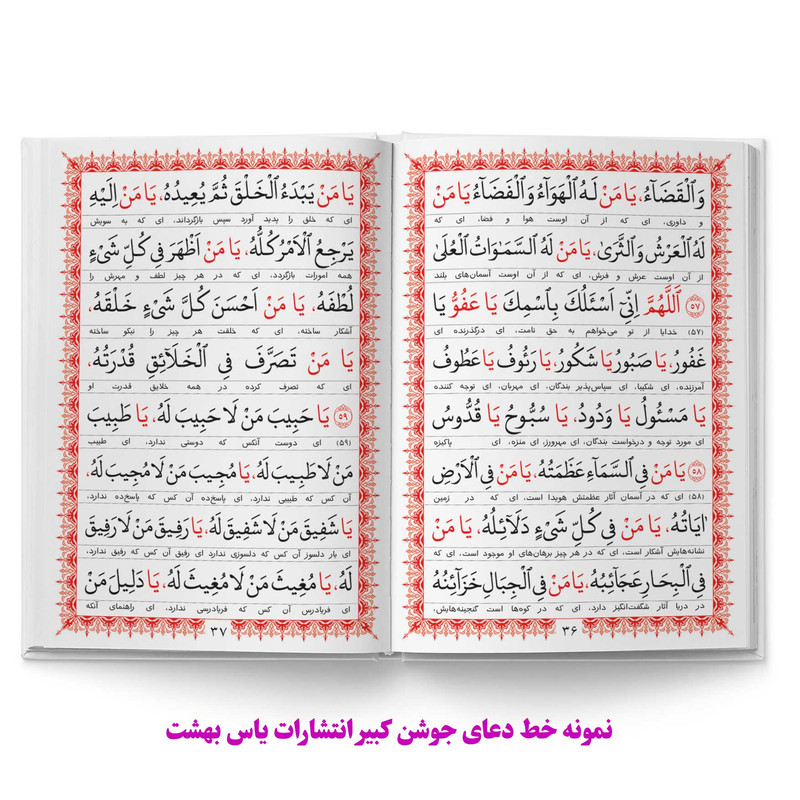 وَالْقَضَآءُ، يَا مَنْ لَهُ الْهَوَآءُ وَالْفَضَآءُ، يَا مَنْ
و داوری، ای که از آن اوست هوا و فضا، ای که
لَهُ الْعَرْشُ وَالثَّرىٰ، يَا مَنْ لَهُ السَّمٰوَاتُ الْعُلىٰ
از آن اوست عرش و فرش، ای که از آن اوست آسمان‌های بلند
﴿۵۷﴾ اَللّٰهُمَّ اِنّٖى اَسْئَلُكَ بِاسْمِكَ يَا عَفُوُّ يَا
(۵۷) خدایا از تو می‌خواهم به حق نامت، ای درگذرنده ای
غَفُورُ، يَا صَبُورُ يَا شَكُورُ، يَا رَئُوفُ يَا عَطُوفُ
آمرزنده، ای شکیبا، ای سپاس‌پذیر بندگان، ای مهربان، ای توجه کننده
يَا مَسْئُولُ يَا وَدُودُ، يَا سُبُّوحُ يَا قُدُّوسُ
ای مورد توجه و درخواست بندگان، ای مهرورز، ای منزه، ای پاکیزه
﴿۵۸﴾ يَا مَنْ فِى السَّمَآءِ عَظَمَتُهُ، يَا مَنْ فِى الْاَرْضِ
(۵۸) ای که در آسمان آثار عظمتش هویدا است، ای که در زمین
اٰيَاتُهُ، يَا مَنْ فٖى كُلِّ شَىْءٍ دَلَآئِلُهُ، يَا مَنْ
نشانه‌هایش آشکار است، ای که در هر چیز برهان‌های او موجود است، ای که
فِى الْبِحَارِ عَجَآئِبُهُ، يَا مَنْ فِى الْجِبَالِ خَزَآئِنُهُ
در دریا آثار شگفت‌انگیز دارد، ای که در کوه‌ها است گنجینه‌هایش،
۳۶
يَا مَنْ يَبْدَءُ الْخَلْقَ ثُمَّ يُعٖيدُهُ، يَا مَنْ اِلَيْهِ
ای که خلق را پدید آورد سپس بازگرداند، ای که به سویش
يَرْجِعُ الْاَمْرُ كُلُّهُ، يَا مَنْ اَظْهَرَ فٖى كُلِّ شَىْءٍ
همه امورات بازگردد، ای که در هر چیز لطف و مهرش را
لُطْفَهُ، يَا مَنْ اَحْسَنَ كُلَّ شَىْءٍ خَلْقَهُ،
آشکار ساخته، ای که خلقت هر چیز را نیکو ساخته
يَا مَنْ تَصَرَّفَ فِى الْخَلَآئِقِ قُدْرَتُهُ،
ای که تصرف کرده در همه خلایق قدرت او
﴿۵۹﴾ يَا حَبٖيبَ مَنْ لَا حَبٖيبَ لَهُ، يَا طَبٖيبَ
(۵۹) ای دوست آنکس که دوستی ندارد، ای طبیب
مَنْ لَا طَبٖيبَ لَهُ، يَا مُجٖيبَ مَنْ لَا مُجٖيبَ لَهُ،
آن کس که طبیبی ندارد، ای پاسخ‌ده آن کس که پاسخ‌ده ندارد،
يَا شَفٖيقَ مَنْ لَا شَفٖيقَ لَهُ، يَا رَفٖيقَ مَنْ لَا رَفٖيقَ
ای یار دلسوز آن کس که دلسوزی ندارد ای رفیق آن کس که رفیق ندارد،
لَهُ، يَا مُغٖيثَ مَنْ لَا مُغٖيثَ لَهُ، يَا دَلٖيلَ مَنْ
ای فریادرس آن کس که فریادرسی ندارد، ای راهنمای آنکه
۳۷
نمونه خط دعای جوشن کبیر انتشارات یاس بهشت